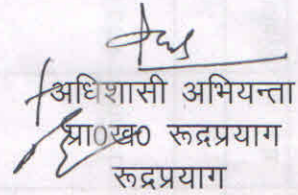 अधिशासी अभियन्ता
प्रा0ख0 रूद्रप्रयाग
रूद्रप्रयाग